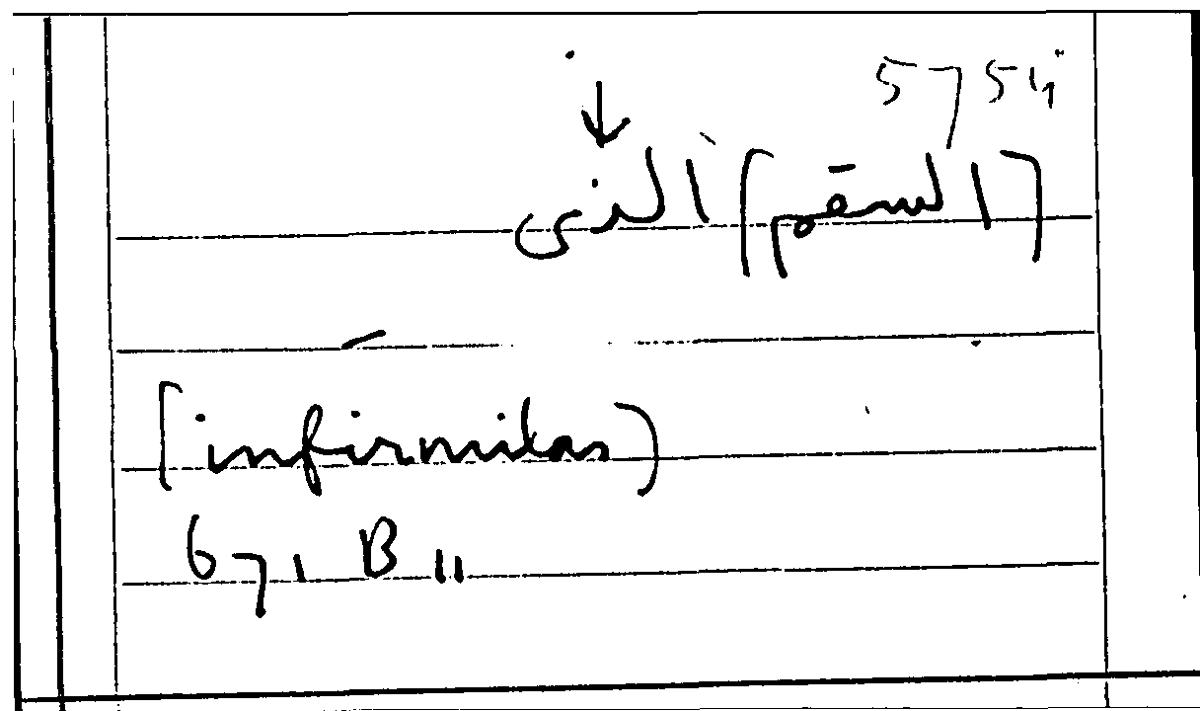 5754
(السقم) الذى
(infirmitas)
671 B 11